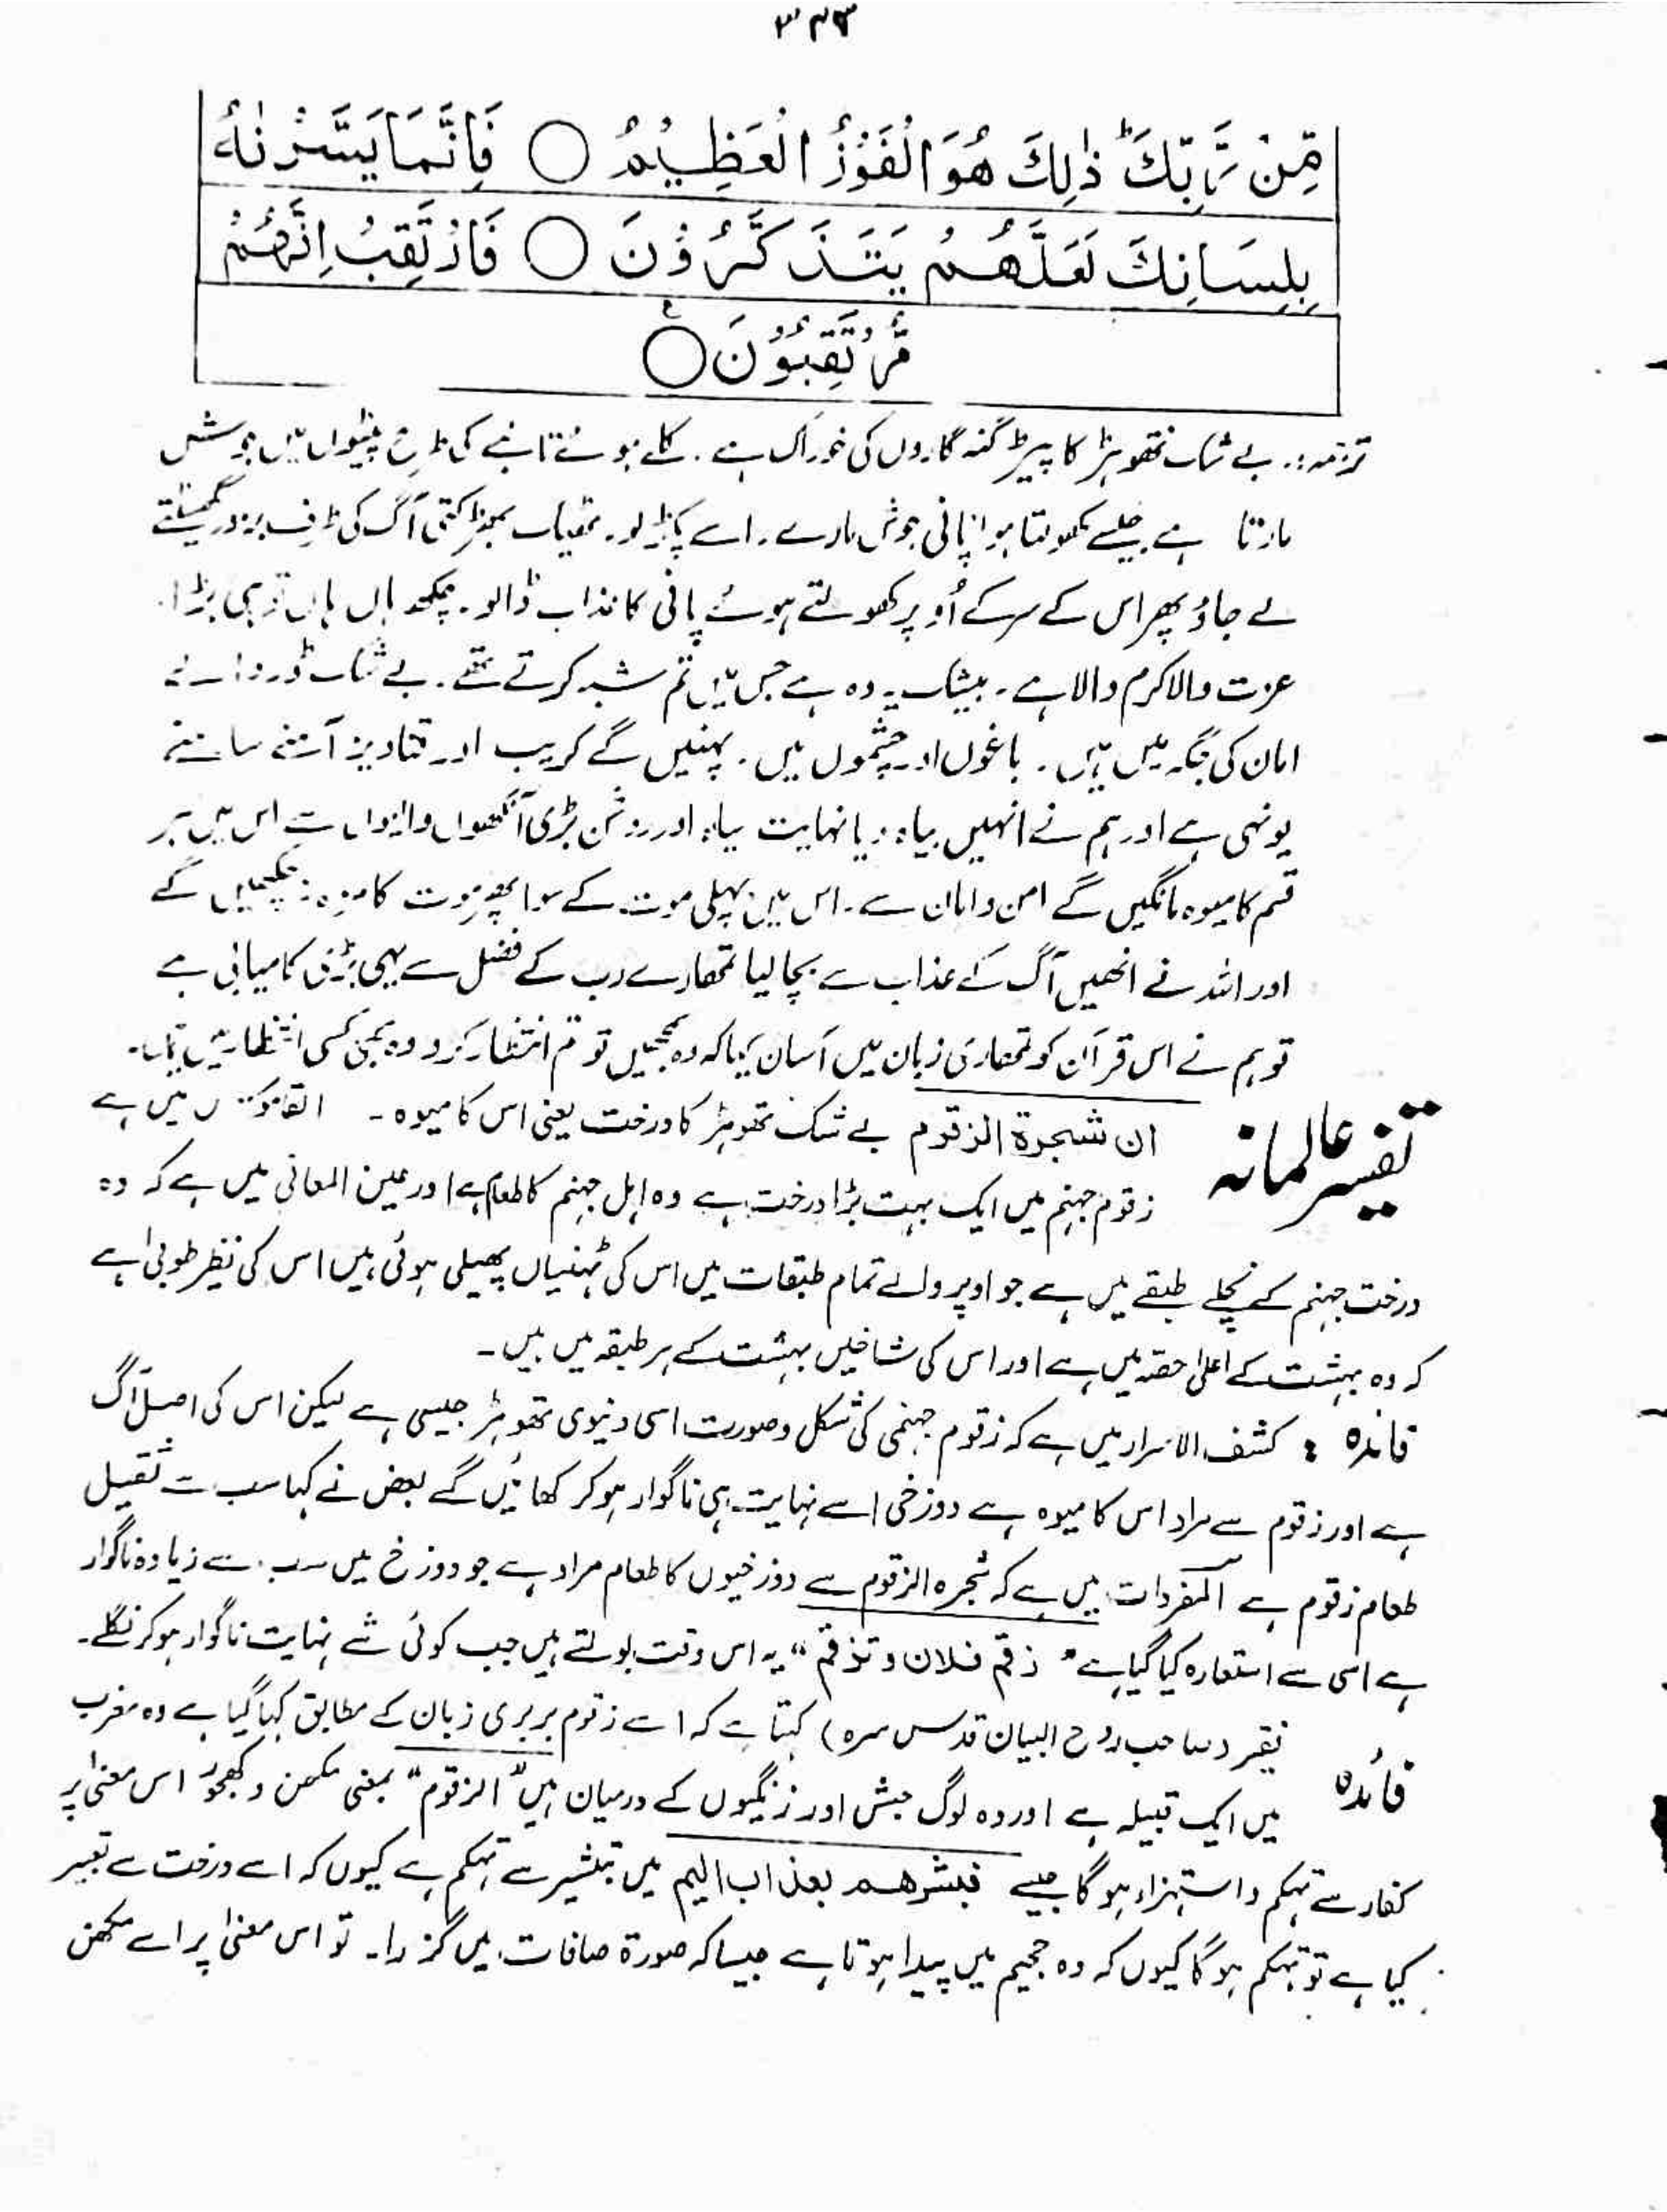 ۳۴۴
مِّنْ رَّبِّكَ ؕ ذٰلِكَ هُوَ الْفَوْزُ الْعَظِيْمُ ○ فَاِنَّمَا يَسَّرْنٰهُ
بِلِسَانِكَ لَعَلَّهُمْ يَتَذَكَّرُوْنَ ○ فَارْتَقِبْ اِنَّهُمْ
مُّرْتَقِبُوْنَ ○
ترجمہ:۔ بے شک تھوہڑ کا پیڑ گنہ گاروں کی خوراک ہے۔ گلے ہوئے تانبے کی طرح پیٹوں میں جوش
مارتا ہے جیسے کھولتا ہوا پانی جوش مارے۔ اسے پکڑ لو۔ ٹھیک بھڑکتی آگ کی طرف بزور گھسیٹتے
لے جاؤ پھر اس کے سر کے اُوپر کھولتے ہوئے پانی کا عذاب ڈالو۔ چکھ ہاں ہاں تو ہی بڑا
عزت والا کرم والا ہے۔ بیشک یہ وہ ہے جس میں تم شبہ کرتے تھے۔ بے شک ڈر والے
امان کی جگہ میں ہیں۔ باغوں اور چشموں میں۔ پہنیں گے کریب اور قنادیز آمنے سامنے
یونہی ہے اور ہم نے انہیں بیاہ دیا نہایت سیاہ اور روشن بڑی آنکھوں والیوں سے اس میں ہر
قسم کا میوہ مانگیں گے امن و امان سے۔ اس میں پہلی موت کے سوا پھر موت کا مزہ نہ چکھیں گے
اور اللہ نے انھیں آگ کے عذاب سے بچا لیا تمھارے رب کے فضل سے یہی بڑی کامیابی ہے
تو ہم نے اس قرآن کو تمھاری زبان میں آسان کیا کہ وہ سمجھیں تو تم انتظار کرو وہ بھی کسی انتظار میں ہیں۔
تفسیر عالمانہ ان شجرۃ الزقوم بے شک تھوہڑ کا درخت یعنی اس کا میوہ۔ القاموس میں ہے
زقوم جہنم میں ایک بہت بڑا درخت ہے وہ اہل جہنم کا طعام ہے اور عین المعانی میں ہے کہ وہ
درخت جہنم کے نچلے طبقے میں ہے جو اوپر والے تمام طبقات میں اس کی ٹہنیاں پھیلی ہوئی ہیں اس کی نظیر طوبیٰ ہے
کہ وہ بہشت کے اعلیٰ حصہ میں ہے اور اس کی شاخیں بہشت کے ہر طبقہ میں ہیں۔
فائدہ : کشف الاسرار میں ہے کہ زقوم جہنمی کی شکل و صورت اسی دنیوی تھوہڑ جیسی ہے لیکن اس کی اصل آگ
ہے اور زقوم سے مراد اس کا میوہ ہے دوزخی اسے نہایت ہی ناگوار ہو کر کھائیں گے بعض نے کہا سب سے ثقیل
طعام زقوم ہے المفردات میں ہے کہ شجرہ الزقوم سے دوزخیوں کا طعام مراد ہے جو دوزخ میں سب سے زیادہ ناگوار
ہے اسی سے استعارہ کیا گیا ہے " زقم فلان و تزقم " یہ اس وقت بولتے ہیں جب کوئی شے نہایت ناگوار ہو کر نگلے۔
فائدہ فقیر (صاحب روح البیان قدس سرہ) کہتا ہے کہ اسے زقوم بربری زبان کے مطابق کہا گیا ہے وہ مغرب
میں ایک قبیلہ ہے اور وہ لوگ حبش اور زنگیوں کے درمیان ہیں " الزقوم " بمعنی مکھن و کھجور اس معنیٰ پر
کفار سے تہکم و استہزاء ہوگا جیسے فبشرھم بعذاب الیم میں تبشیر سے تہکم ہے کیوں کہ اسے درخت سے تعبیر
کیا ہے تو تہکم ہوگا کیوں کہ وہ جحیم میں پیدا ہوتا ہے جیسا کہ صورۃ صافات میں گزرا۔ تو اس معنیٰ پر اسے مکھن